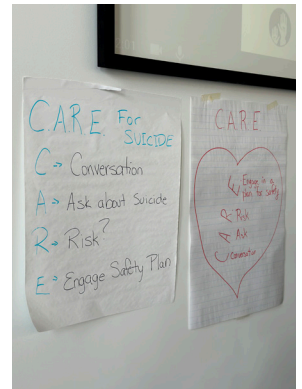 C.A.R.E. For
SUICIDE
C → Conversation
A → Ask about Suicide
R → Risk?
E → Engage Safety Plan
C.A.R.E
E Engage in a
plan for safety
R Risk
A Ask
C Conversation